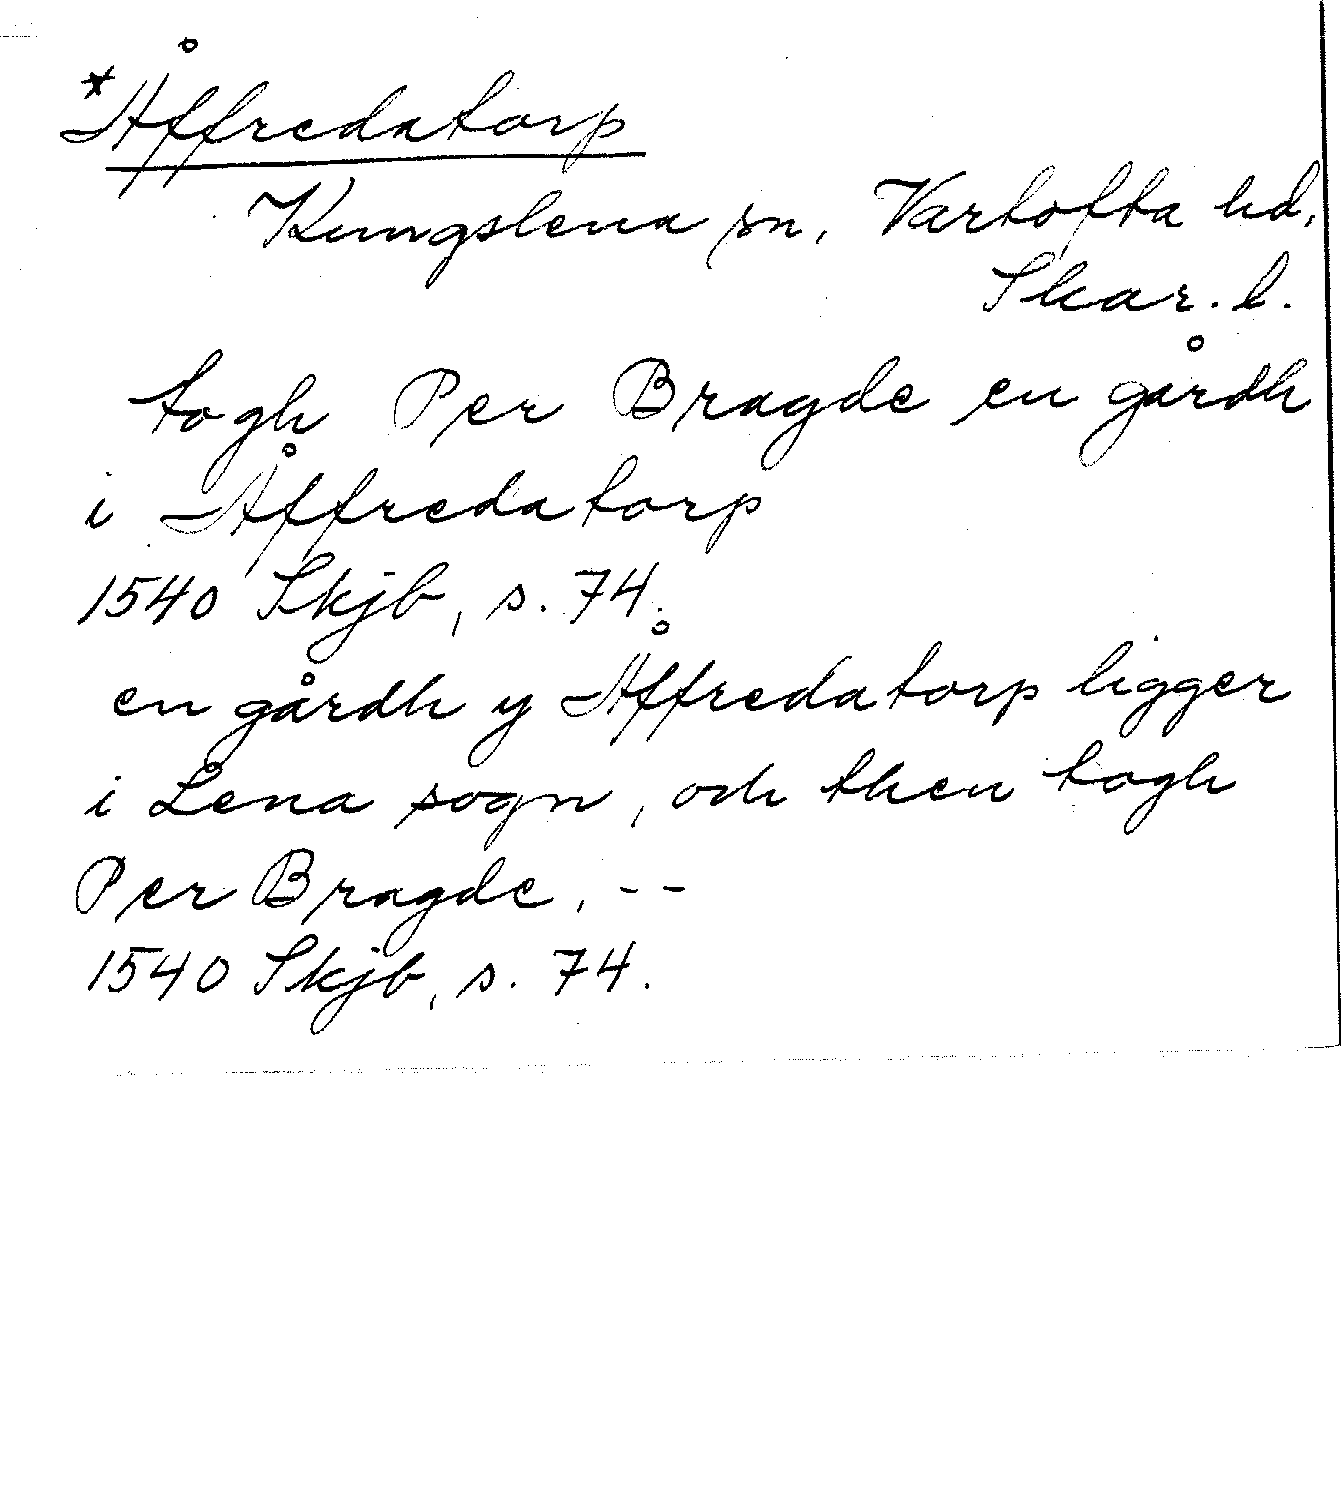 *Åffredatorp
Kungslena sn, Vartofta hd,
Skar. l.
togh Per Bragde en gårdh
i Åffredatorp
1540 Skjb, s. 74.
en gårdh y Åffredatorp ligger
i Lena sogn, och then togh
Per Bragde, --
1540 Skjb, s. 74.